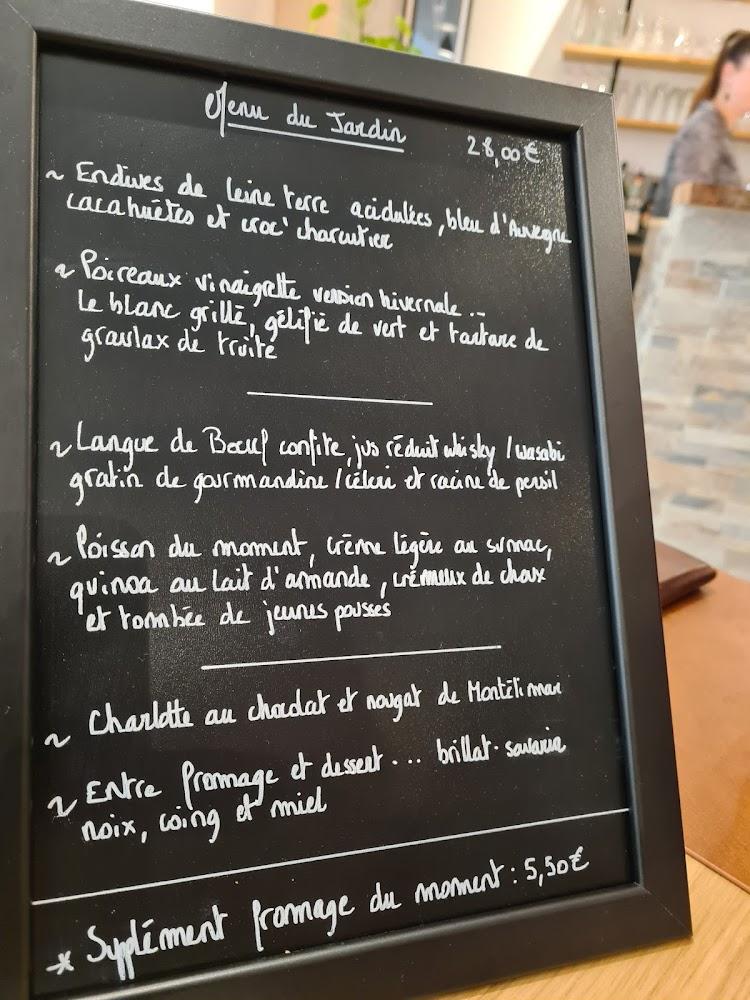 Menu du Jardin
28,00€
~ Endives de Pleine terre acidulées, bleu d'Auvergne
cacahuètes et croc' charcutier
~ Poireaux vinaigrette version hivernale...
Le blanc grillé, gélifié de vert et tartare de
gravlax de truite
~ Langue de Boeuf confite, jus réduit whisky / wasabi
gratin de gourmandine / céleri et racine de persil
~ Poisson du moment, crème légère au sumac,
quinoa au lait d'amande, crémeux de choux
et tombée de jeunes pousses
~ Charlotte au chocolat et nougat de Montélimar
~ Entre fromage et dessert... brillat-savarin
noix, coing et miel
* Supplément fromage du moment : 5,50€